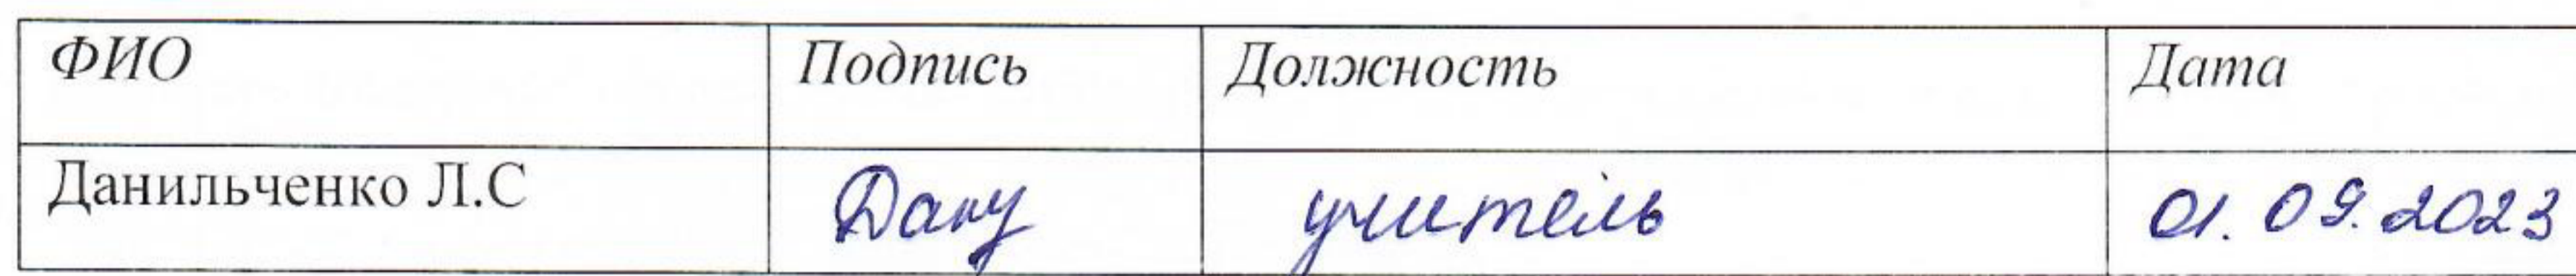 ФИО Подпись Должность Дата
Данильченко Л.С учитель 01.09.2023